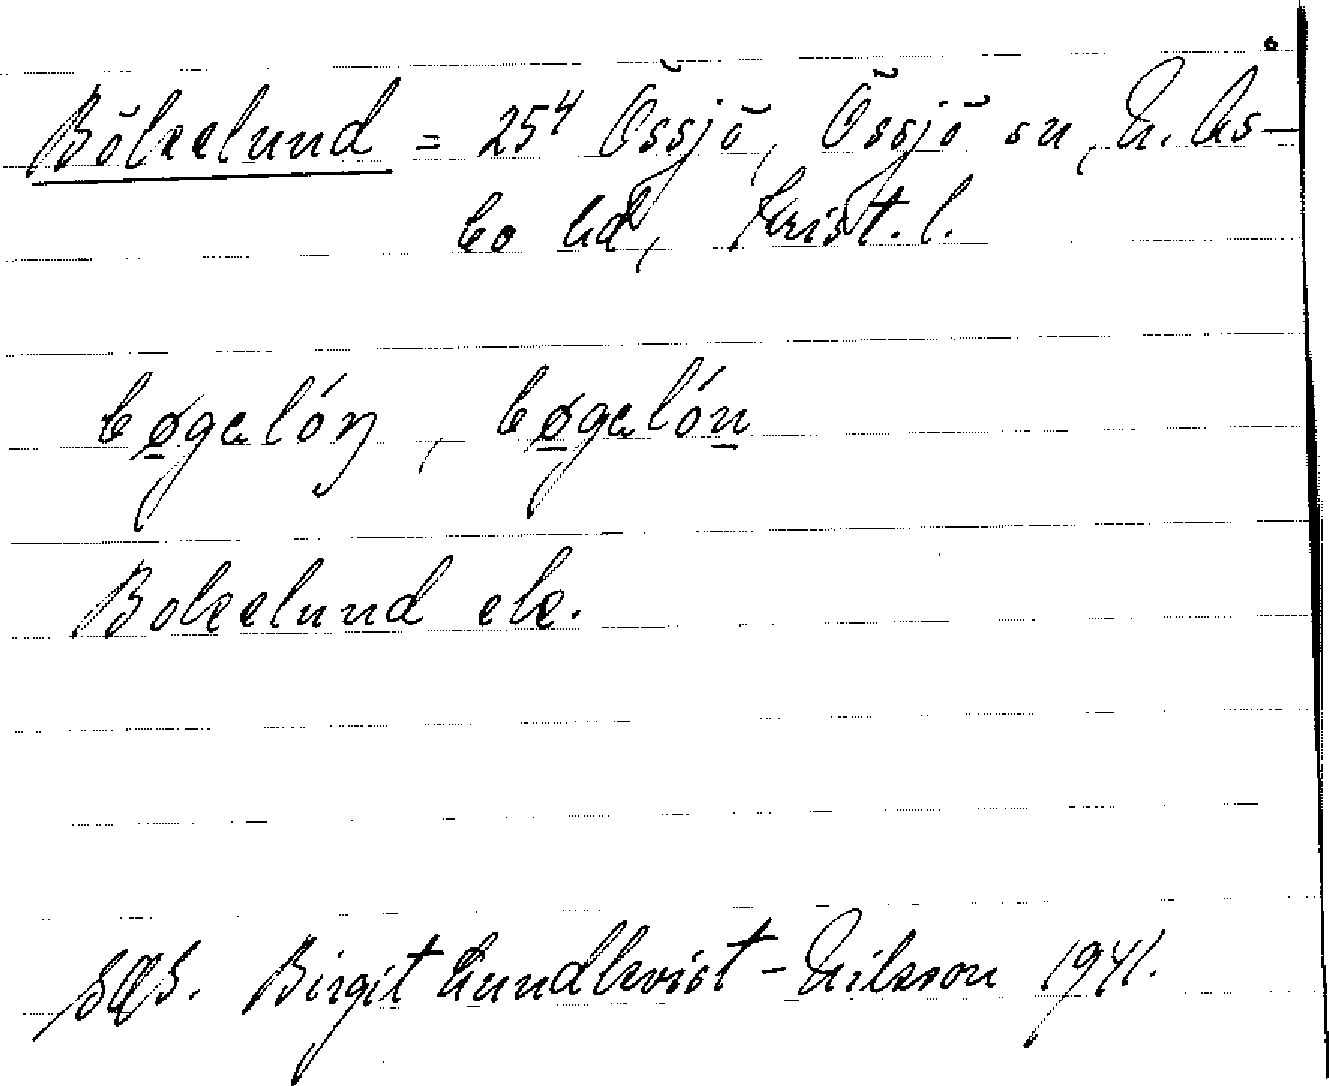 Bökelund = 25⁴ Össjö, Össjö sn, N. Ås-
bo hd, Krist. l.
bøgəlón, bøgəlón
Bokelund ek.
SOS. Birgit Lundkvist-Nilsson 1941.